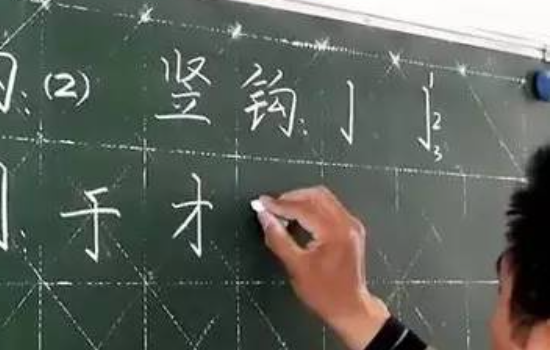 (2) 竖钩: 亅 亅 1 2 3
于 才